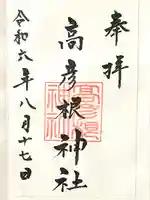 奉拝
高彦根神社
令和六年八月十七日